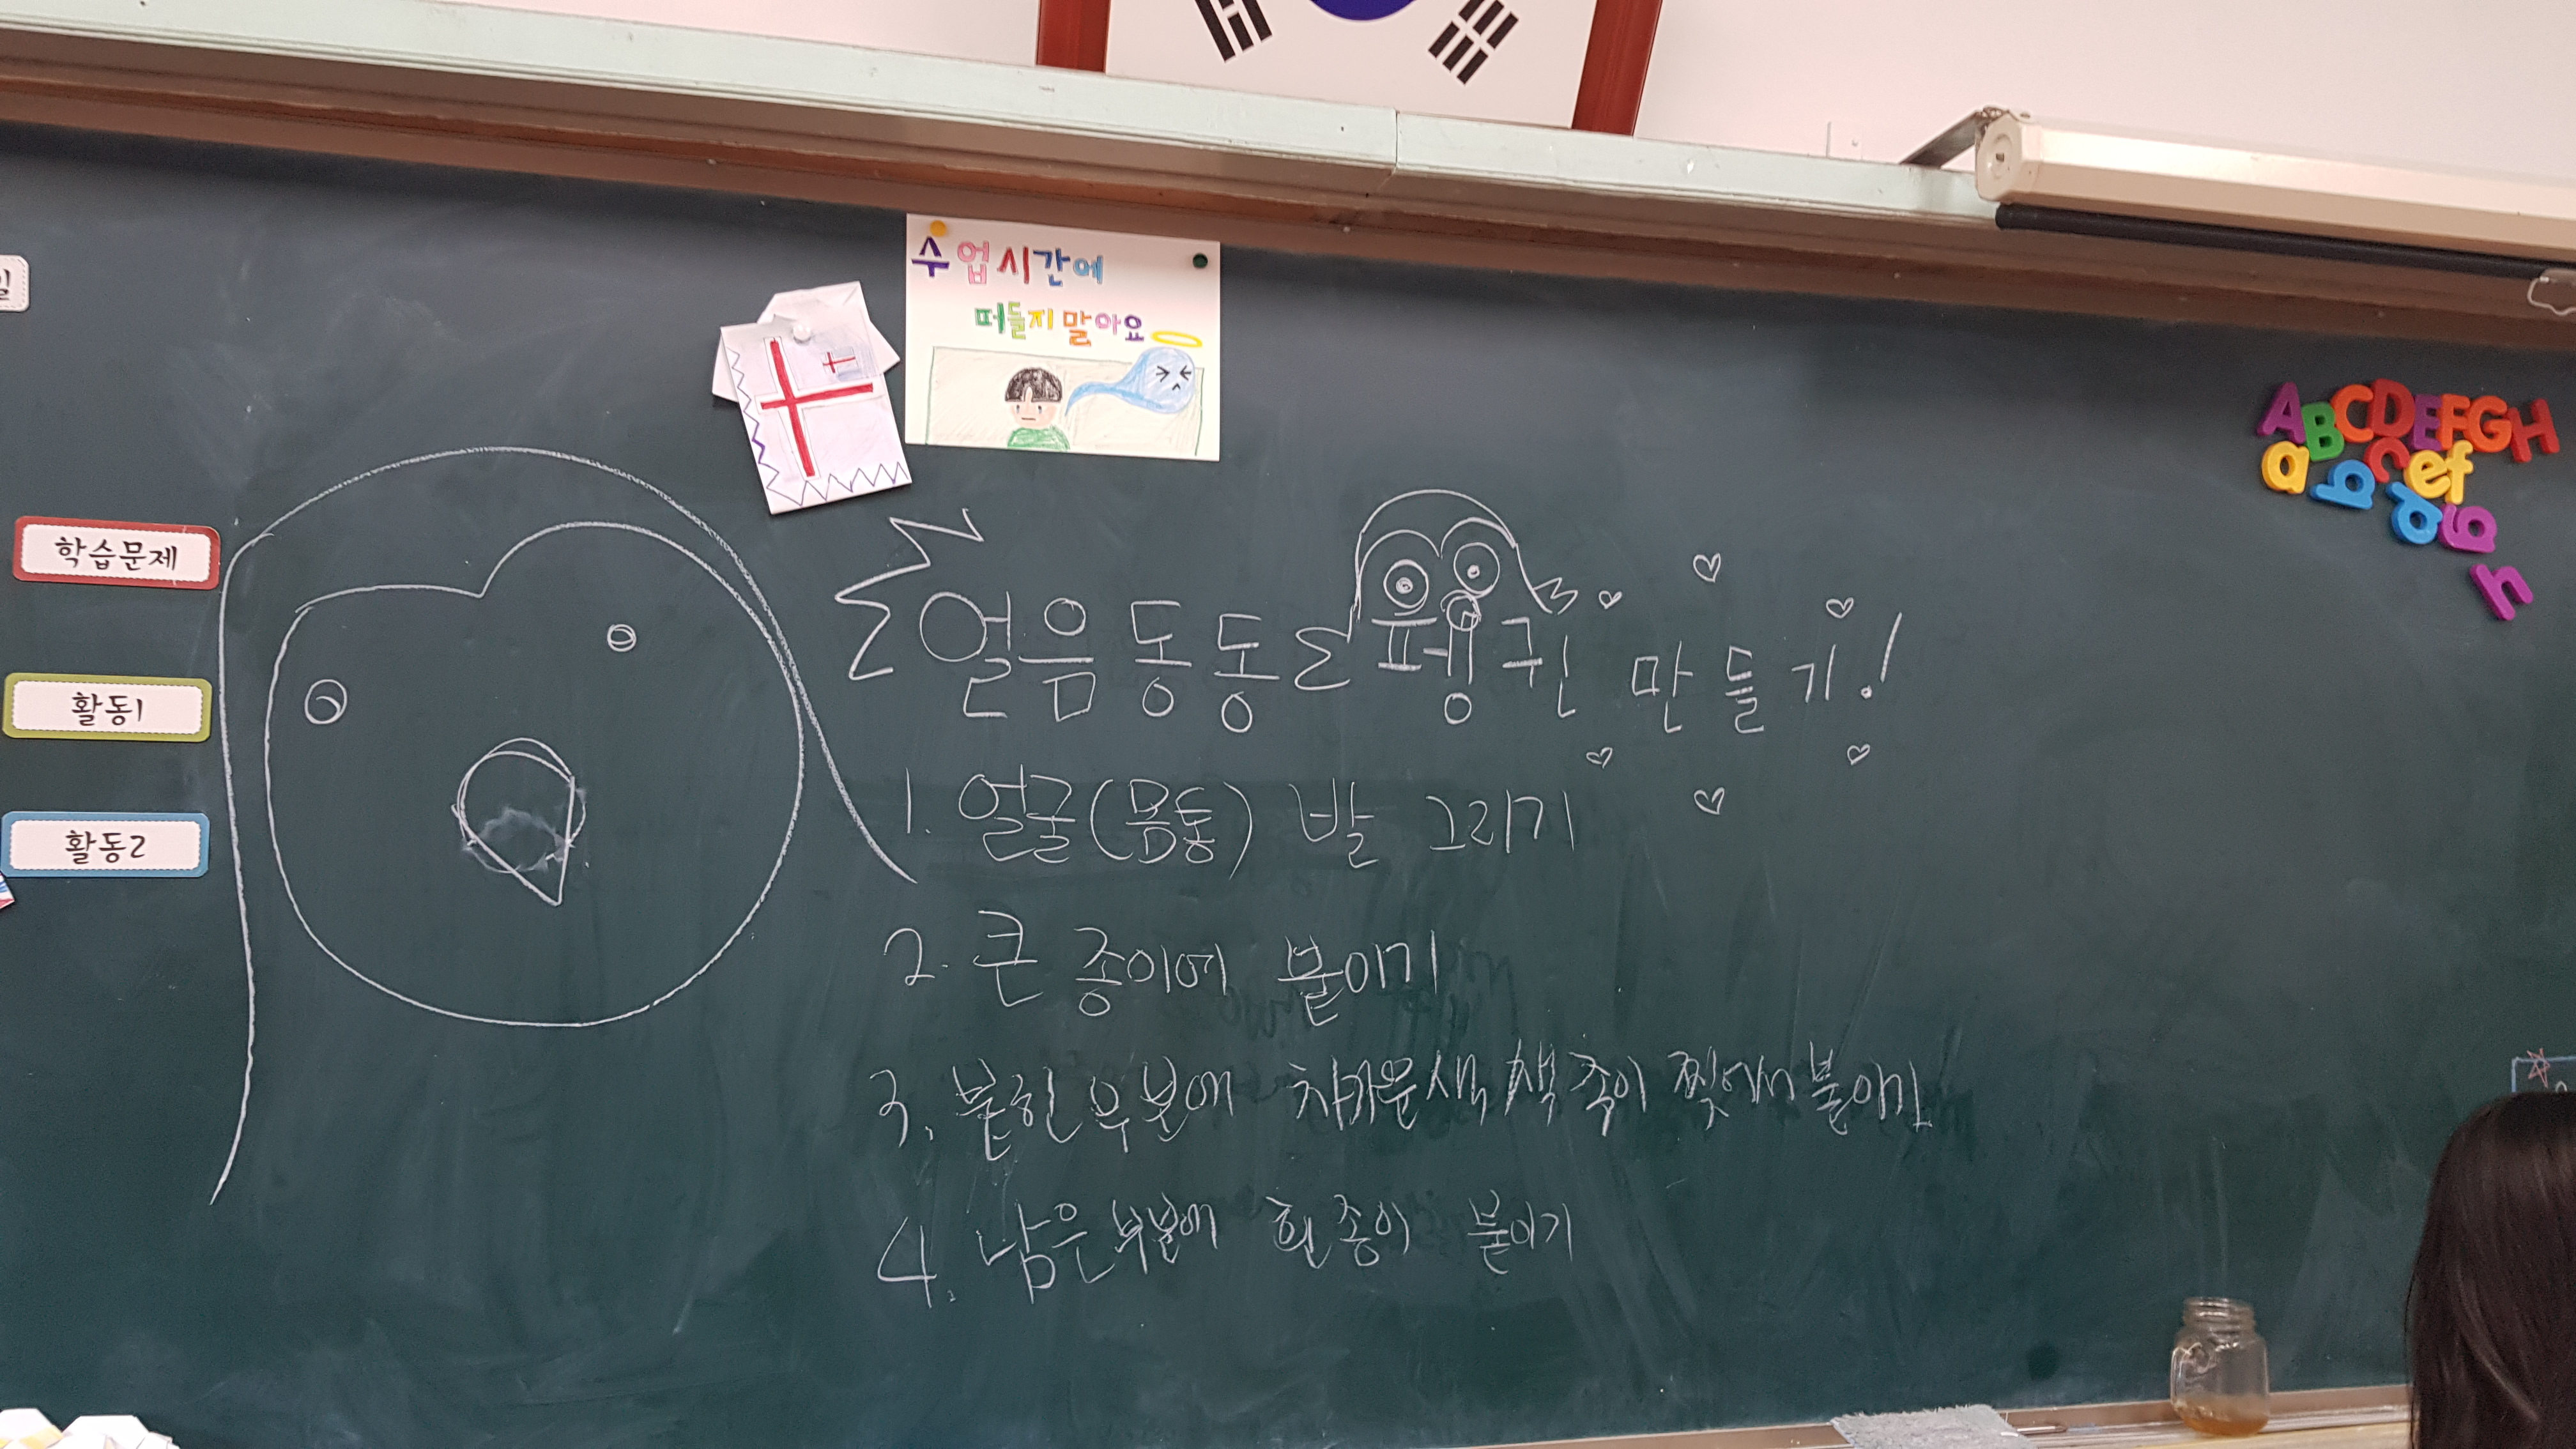 일
수업시간에
떠들지 말아요
ABCDEFGH
a b c ef
d g
h
학습문제
활동1
활동2
얼음동동 펭귄 만들기!
1. 얼굴(몸통) 발 그리기
2. 큰 종이에 붙이기
3. 붙힌 부분에 차가운색 색종이 찢어서 붙이기
4. 남은 부분에 흰 종이 붙이기